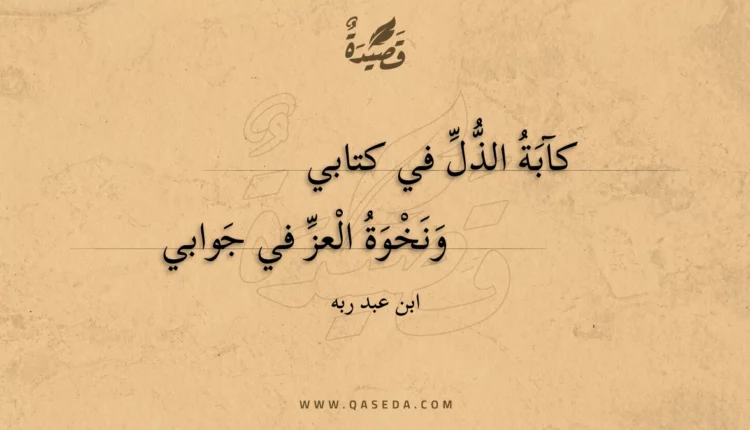 قَصِيْدَةٌ
كآبَةُ الذُّلِّ في كتابي
وَنَخْوَةُ الْعزِّ في جَوابي
ابن عبد ربه
WWW.QASEDA.COM